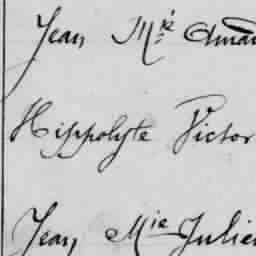 Jean Mie Aman
Hippolyte Victor
Jean Mie Julien